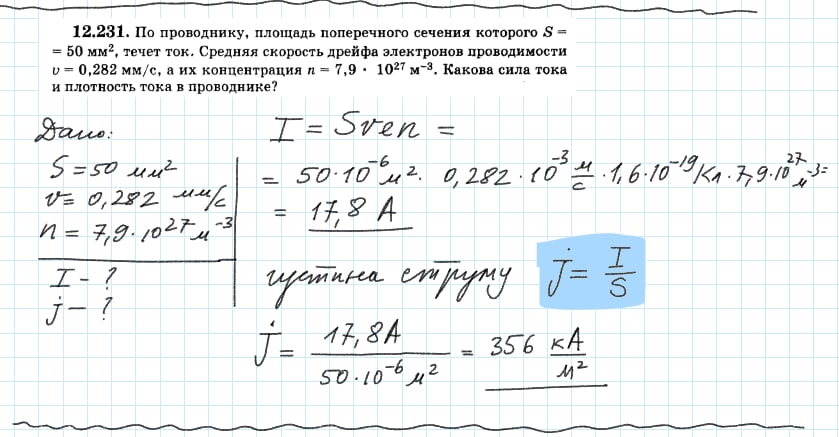 12.231. По проводнику, площадь поперечного сечения которого S =
= 50 мм², течет ток. Средняя скорость дрейфа электронов проводимости
υ = 0,282 мм/с, а их концентрация n = 7,9 · 10²⁷ м⁻³. Какова сила тока
и плотность тока в проводнике?
Дано:
S = 50 мм²
v = 0,282 мм/с
n = 7,9·10²⁷ м⁻³
I – ?
j – ?
I = Sven =
= 50·10⁻⁶ м² · 0,282·10⁻³ м/с · 1,6·10⁻¹⁹ Кл · 7,9·10²⁷ м⁻³ =
= 17,8 А
густина струму j = I/S
j = 17,8А / 50·10⁻⁶ м² = 356 кА/м²